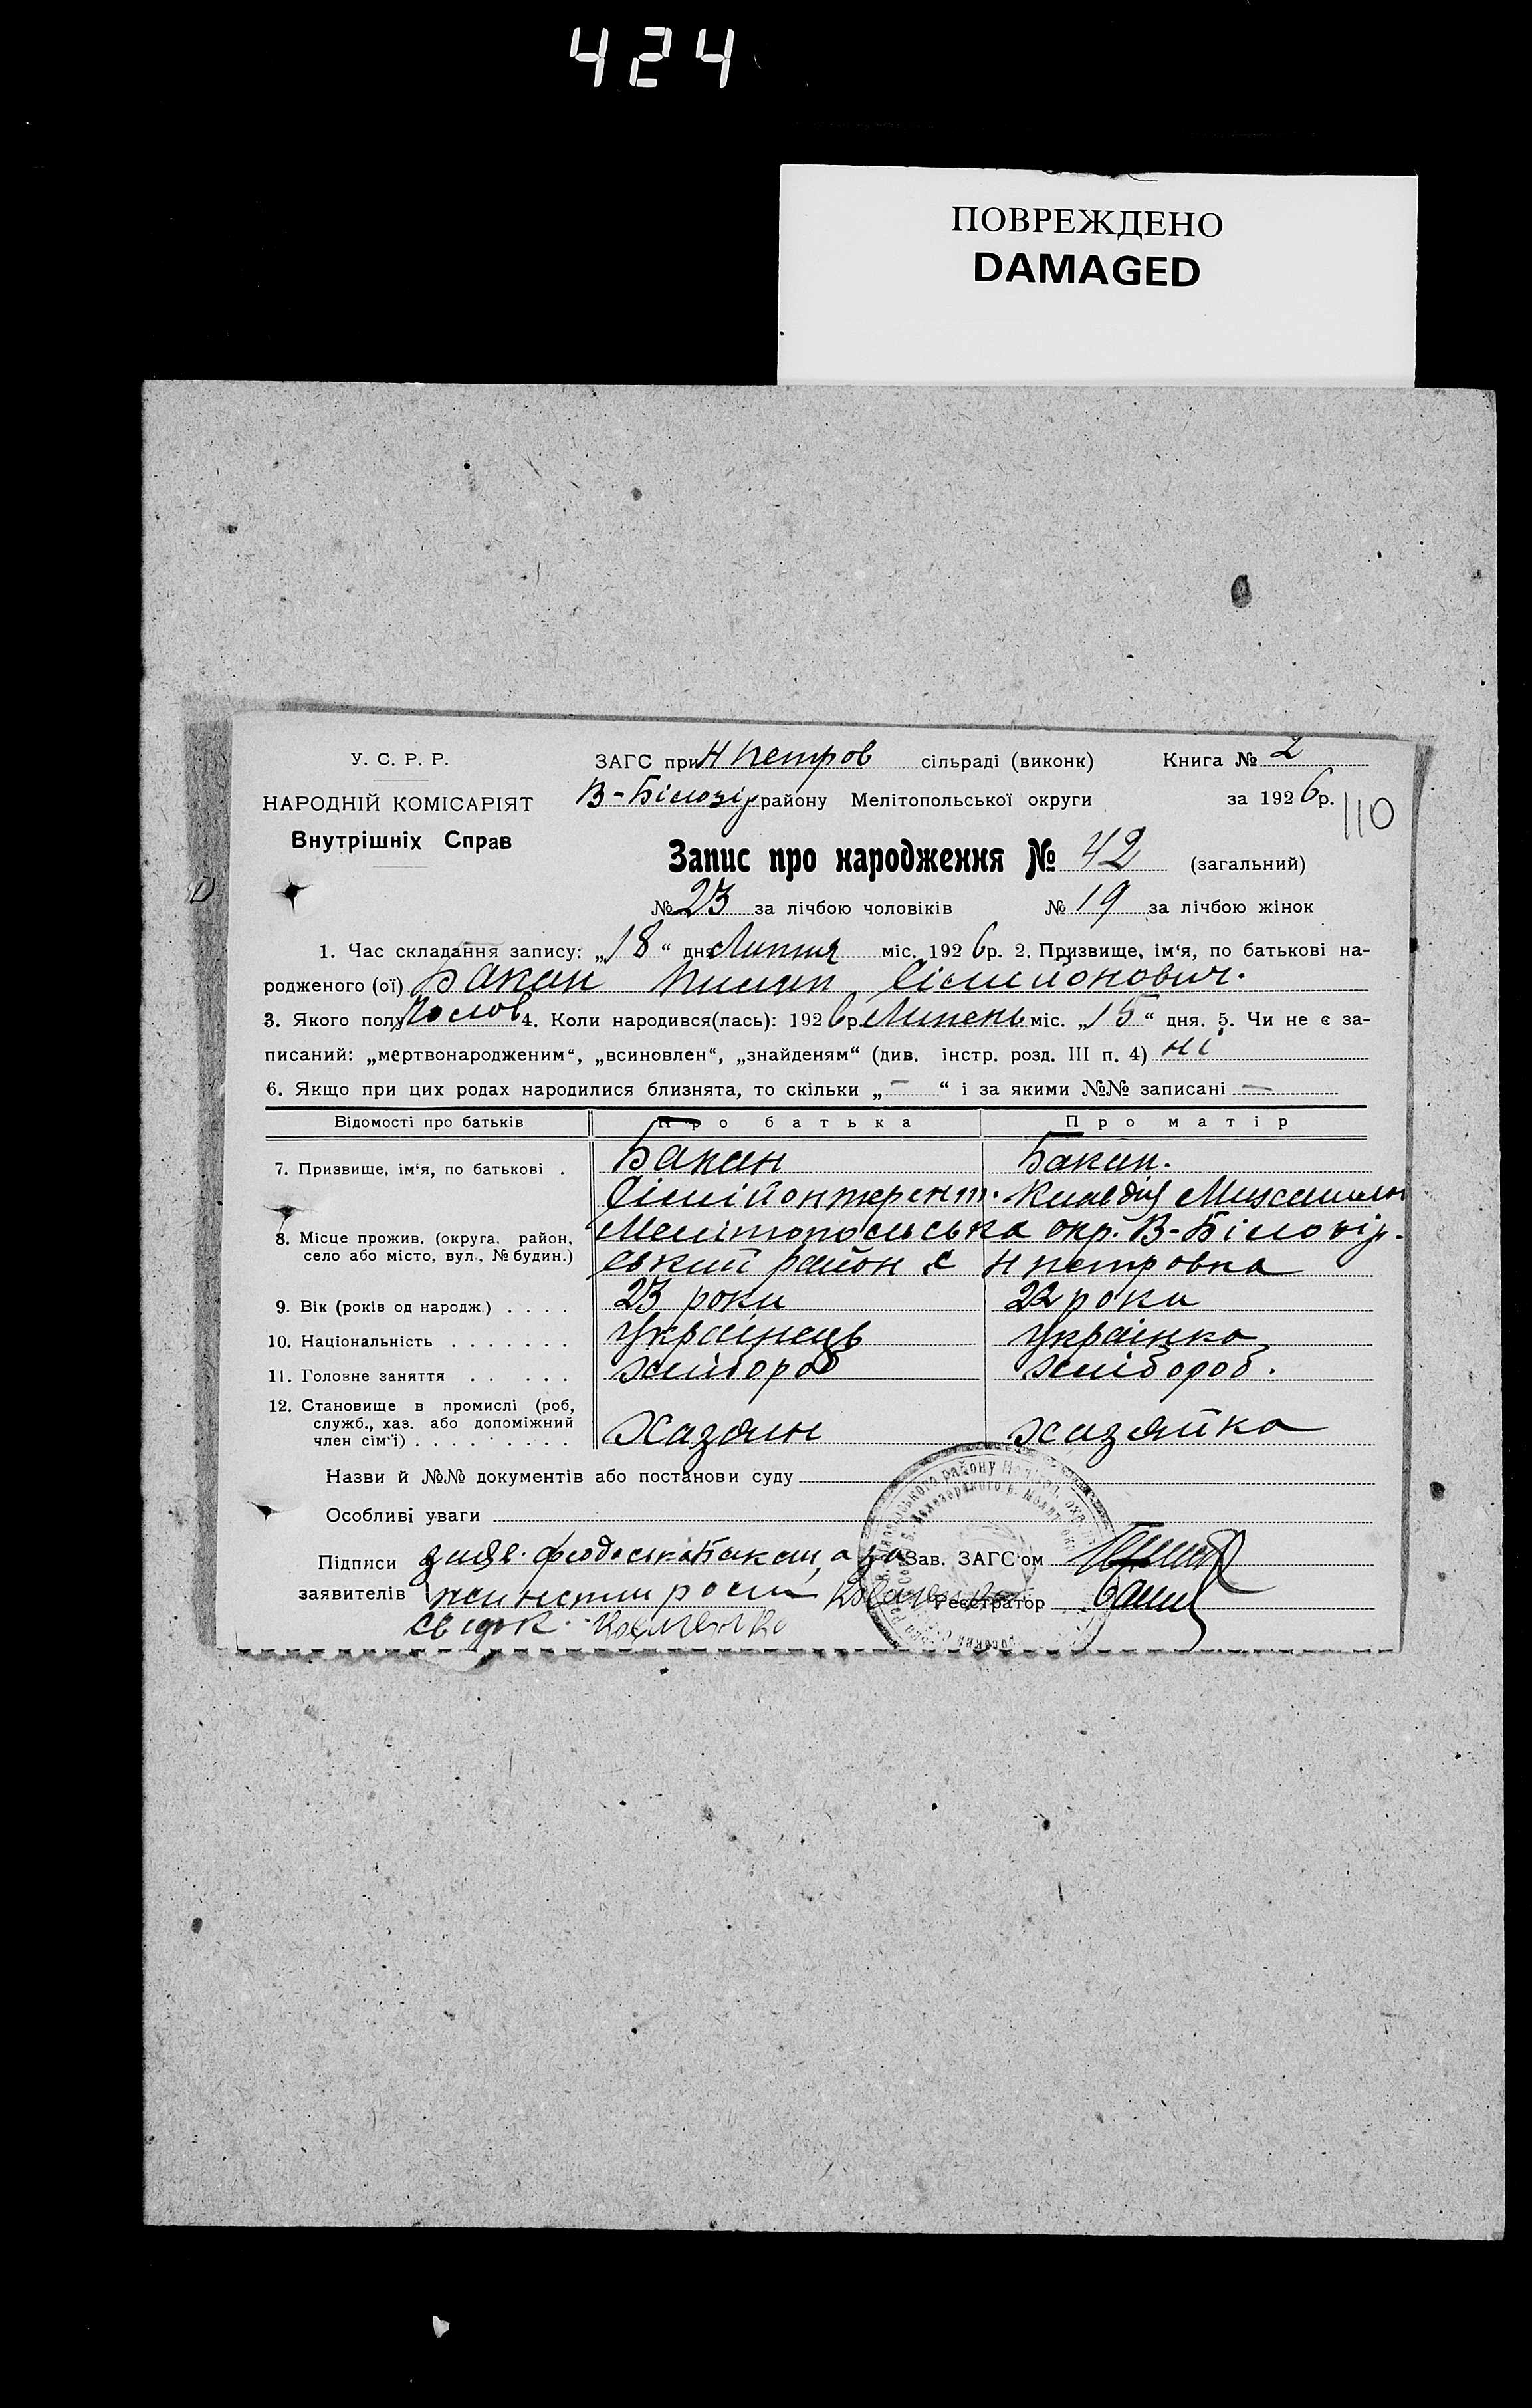 424
ПОВРЕЖДЕНО
DAMAGED
У. С. Р. Р.
ЗАГС при Н петров сільраді (виконк) Книга № 2
НАРОДНІЙ КОМІСАРІЯТ
В-Білозір району Мелітопольської округи за 1926р.
110
Внутрішніх Справ
Запис про народження № 42 (загальний)
№ 23 за лічбою чоловіків № 19 за лічбою жінок
1. Час складання запису: „18“ дня Липня міс. 1926р. 2. Призвище, ім‘я, по батькові на-
родженого (ої) Бакан
3. Якого полу 4. Коли народився(лась): 1926р. Липень міс. „15“ дня. 5. Чи не є за-
писаний: „мертвонародженим“, „всиновлен“, „знайденям“ (див. інстр. розд. III п. 4) ні
6. Якщо при цих родах народилися близнята, то скільки „—“ і за якими №№ записані —
Відомості про батьків Про батька Про матір
7. Призвище, ім‘я, по батькові . Бакан Бакан.
Клавдія
8. Місце прожив. (округа, район, село або місто, вул., № будин.) Мелітопольська окр. В-Білозір.
ський район с Н петровка
9. Вік (років од народж.) . . . . 23 роки 22 роки
10. Національність . . . . . . . Українець Українка
11. Головне заняття . . . . . . хлібороб хлібороб.
12. Становище в промислі (роб, служб., хаз. або допоміжний член сім‘ї) . . . . . . . . . Хазяин хазяйка
Назви й №№ документів або постанови суду
Особливі уваги
Підписи Зав. ЗАГС‘ом
заявителів Реєстратор
свідок